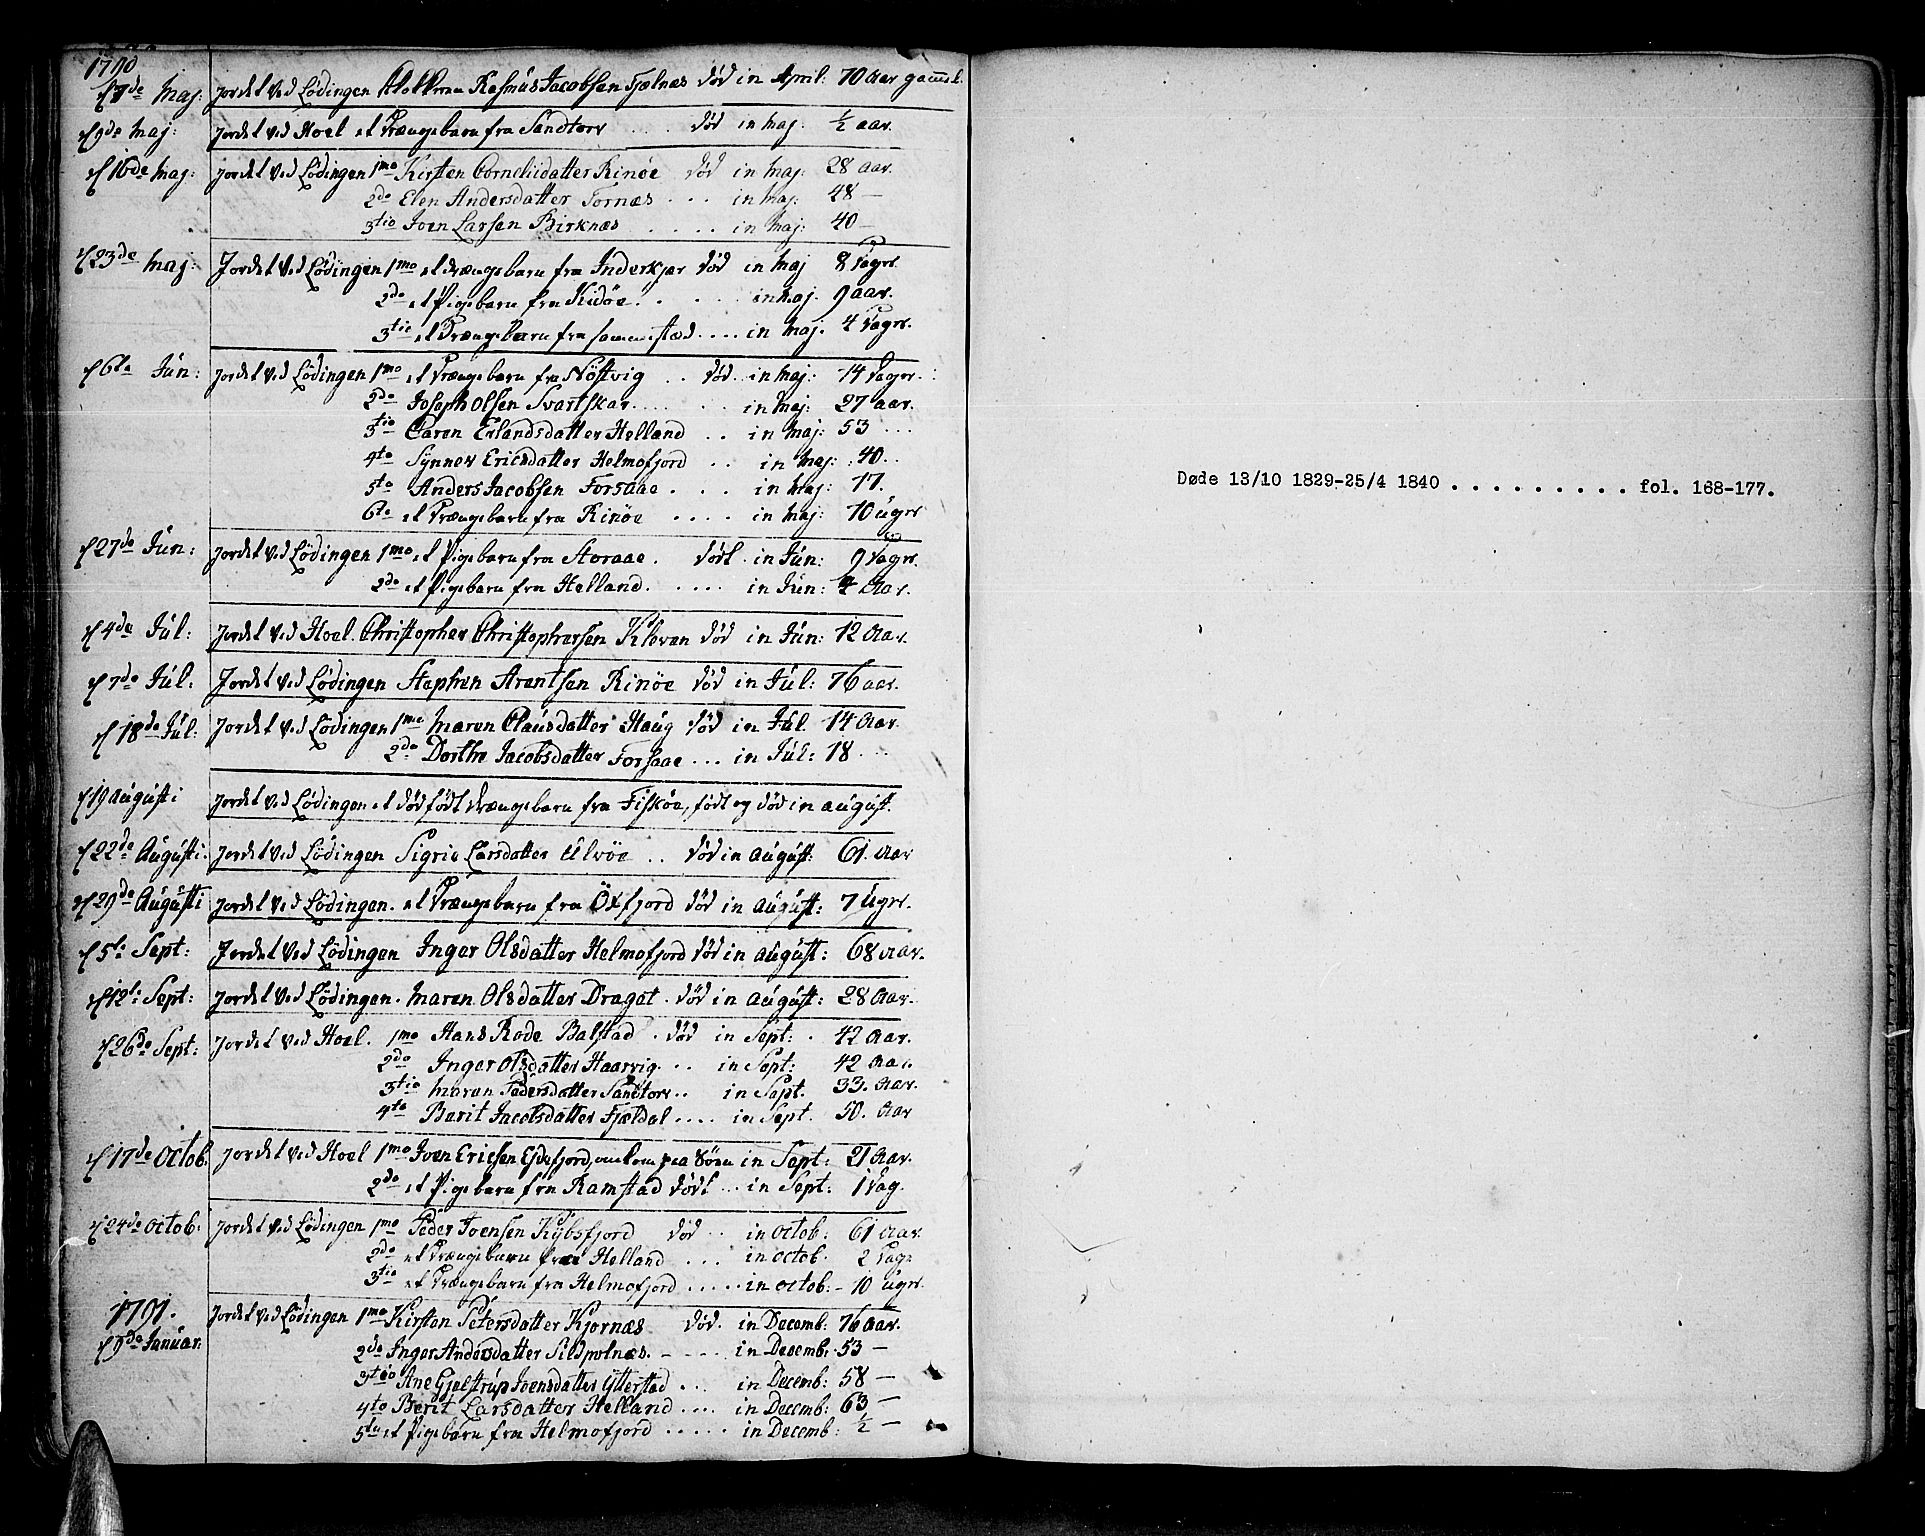 1790
d 7de Maj: Jordet ved Lödingen Rasmus Jacobsen Fjelnæs död in April: 70 Aar gaml.
d 9de Maj: Jordet ved Hoel et Drængebarn fra Sandtorv .... död in Maj. ½ aar.
d 16de Maj: Jordet ved Lödingen 1mo Kirsten Corneliidatter Rinöe död in Maj: 28 aar.
2do Elen Andersdatter Fornæs .... in Maj: 48 —
3tio Joen Larsen Birknæs ..... in Maj: 40 —
d 23de Maj: Jordet ved Lödingen 1mo et drængebarn fra Inderkjær död in Maj 8 Dagr.
2do et Pigebarn fra Kidöe. .... in Maj. 9 aar.
3tio et Drængebarn fra sammestæd .... in Maj. 4 Dagr.
d 6te Jun: Jordet ved Lödingen 1mo et Drængebarn fra Nöstvig .. död. in Maj: 14 Dagr.
2do Joseph Olsen Svartskar .... in Maj: 27 aar.
3tio Caren Erlandsdatter Helland .. in Maj: 53 ...
4to Synnev Ericsdatter Helmofjord .. in Maj: 40..
5to Anders Jacobsen Forsaae . ... in Maj: 17.
6to et Drængebarn fra Rinöe .... in Maj: 10 ugr
d 27de Jun: Jordet ved Lödingen 1mo et Pigebarn fra Storaae . födt. in Jun: 9 Dagr.
2do et Pigebarn fra Helland ..... in Jun: 4 Aar.
d 4de Jul: Jordet ved Hoel. Christopher Christophersen Kleven död in Jun: 12 Aar.
d 7de Jul: Jordet ved Lödingen Stephen Arentsen Rinöe död in Jul: 76 aar.
d 18de Jul: Jordet ved Lödingen 1mo Maren Clausdatter Haug död in Jul 14 Aar.
2do Dorthe Jacobsdatter Forsaae ... in Jul: 18 ...
d 19 Augusti Jordet ved Lödingen et dödfödt drængebarn fra Fisköe, födt og död in august.
d 22de Augusti. Jordet ved Lödingen Sigrie Larsdatter Ulvöe .. död in august: 61. Aar
d 29de Augusti Jordet ved Lödingen. et Drængebarn fra Öxfjord död in august: 7 Ugr.
d 5te Sept: Jordet ved Lödingen Inger Olsdatter Helmofjord död in august: 68 Aar.
d 12te Sept: Jordet ved Lödingen. Maren Olsdatter Draget. död in august: 28 Aar.
d 26de Sept: Jordet ved Hoel. 1mo Hans Rode Balstad . död in Sept: . 42 Aar.
2do Inger Olsdatter Haarvig ... in Sept: 42 Aar.
3tio Maren Pedersdatter Sandtorv .. in Sept. 33. Aar.
4to Berit Jacobsdatter Fjeldal .... in Sept. 50. Aar
d 17de Octob. Jordet ved Hoel 1mo Joen Ericsen Esdefjord, omkom paa Söen in Sept: 21 Aar.
2do et Pigebarn fra Ramstad dödt ... in Sept: 1 Dag.
d 24de Octob: Jordet ved Lödingen 1mo Peder Joensen Kybsfjord död .. in Octob: 61 Aar.
2do et Drængebarn fra Helland ... in Octob. 2 Dagr
3tio et Drængebarn fra Helmofjord ..... in Octob: - 10 ugr.
1791.
d 9de Januar: Jordet ved Lödingen 1mo Kirsten Petersdatter Kjornæs död. in Decemb: 76 aar.
2do Inger Andersdatter Sildpolnæs. - .... in Decemb: 53 —
3tio Ane Gjelstrup Joensdatter Ytterstad ... in Decemb: 58 —
4to Berit Larsdatter Helland .... in Decemb: 63 —
5to et Pigebarn fra Helmofjord ..... in Decemb: ½ —
Døde 13/10 1829-25/4 1840 . . . . . . . . . . fol. 168-177.